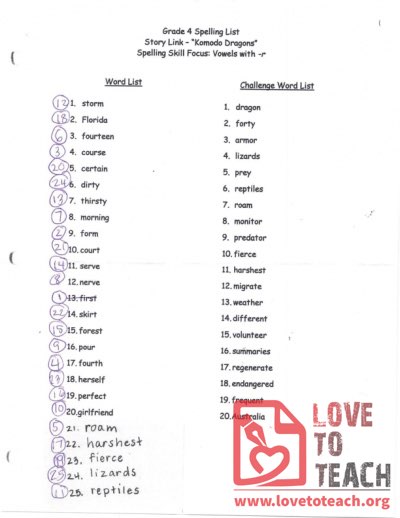 Grade 4 Spelling List
Story Link - "Komodo Dragons"
Spelling Skill Focus: Vowels with -r
Word List
12 1. storm
18 2. Florida
6 3. fourteen
3 4. course
20 5. certain
24 6. dirty
13 7. thirsty
7 8. morning
2 9. form
21 10. court
14 11. serve
8 12. nerve
1 13. first
22 14. skirt
15 15. forest
9 16. pour
4 17. fourth
18. herself
19. perfect
10 20. girlfriend
5 21. roam
17 22. harshest
19 23. fierce
25 24. lizards
11 25. reptiles
Challenge Word List
1. dragon
2. forty
3. armor
4. lizards
5. prey
6. reptiles
7. roam
8. monitor
9. predator
10. fierce
11. harshest
12. migrate
13. weather
14. different
15. volunteer
16. summaries
17. regenerate
18. endangered
19. frequent
20. Australia
LOVE
TO
TEACH
www.lovetoteach.org